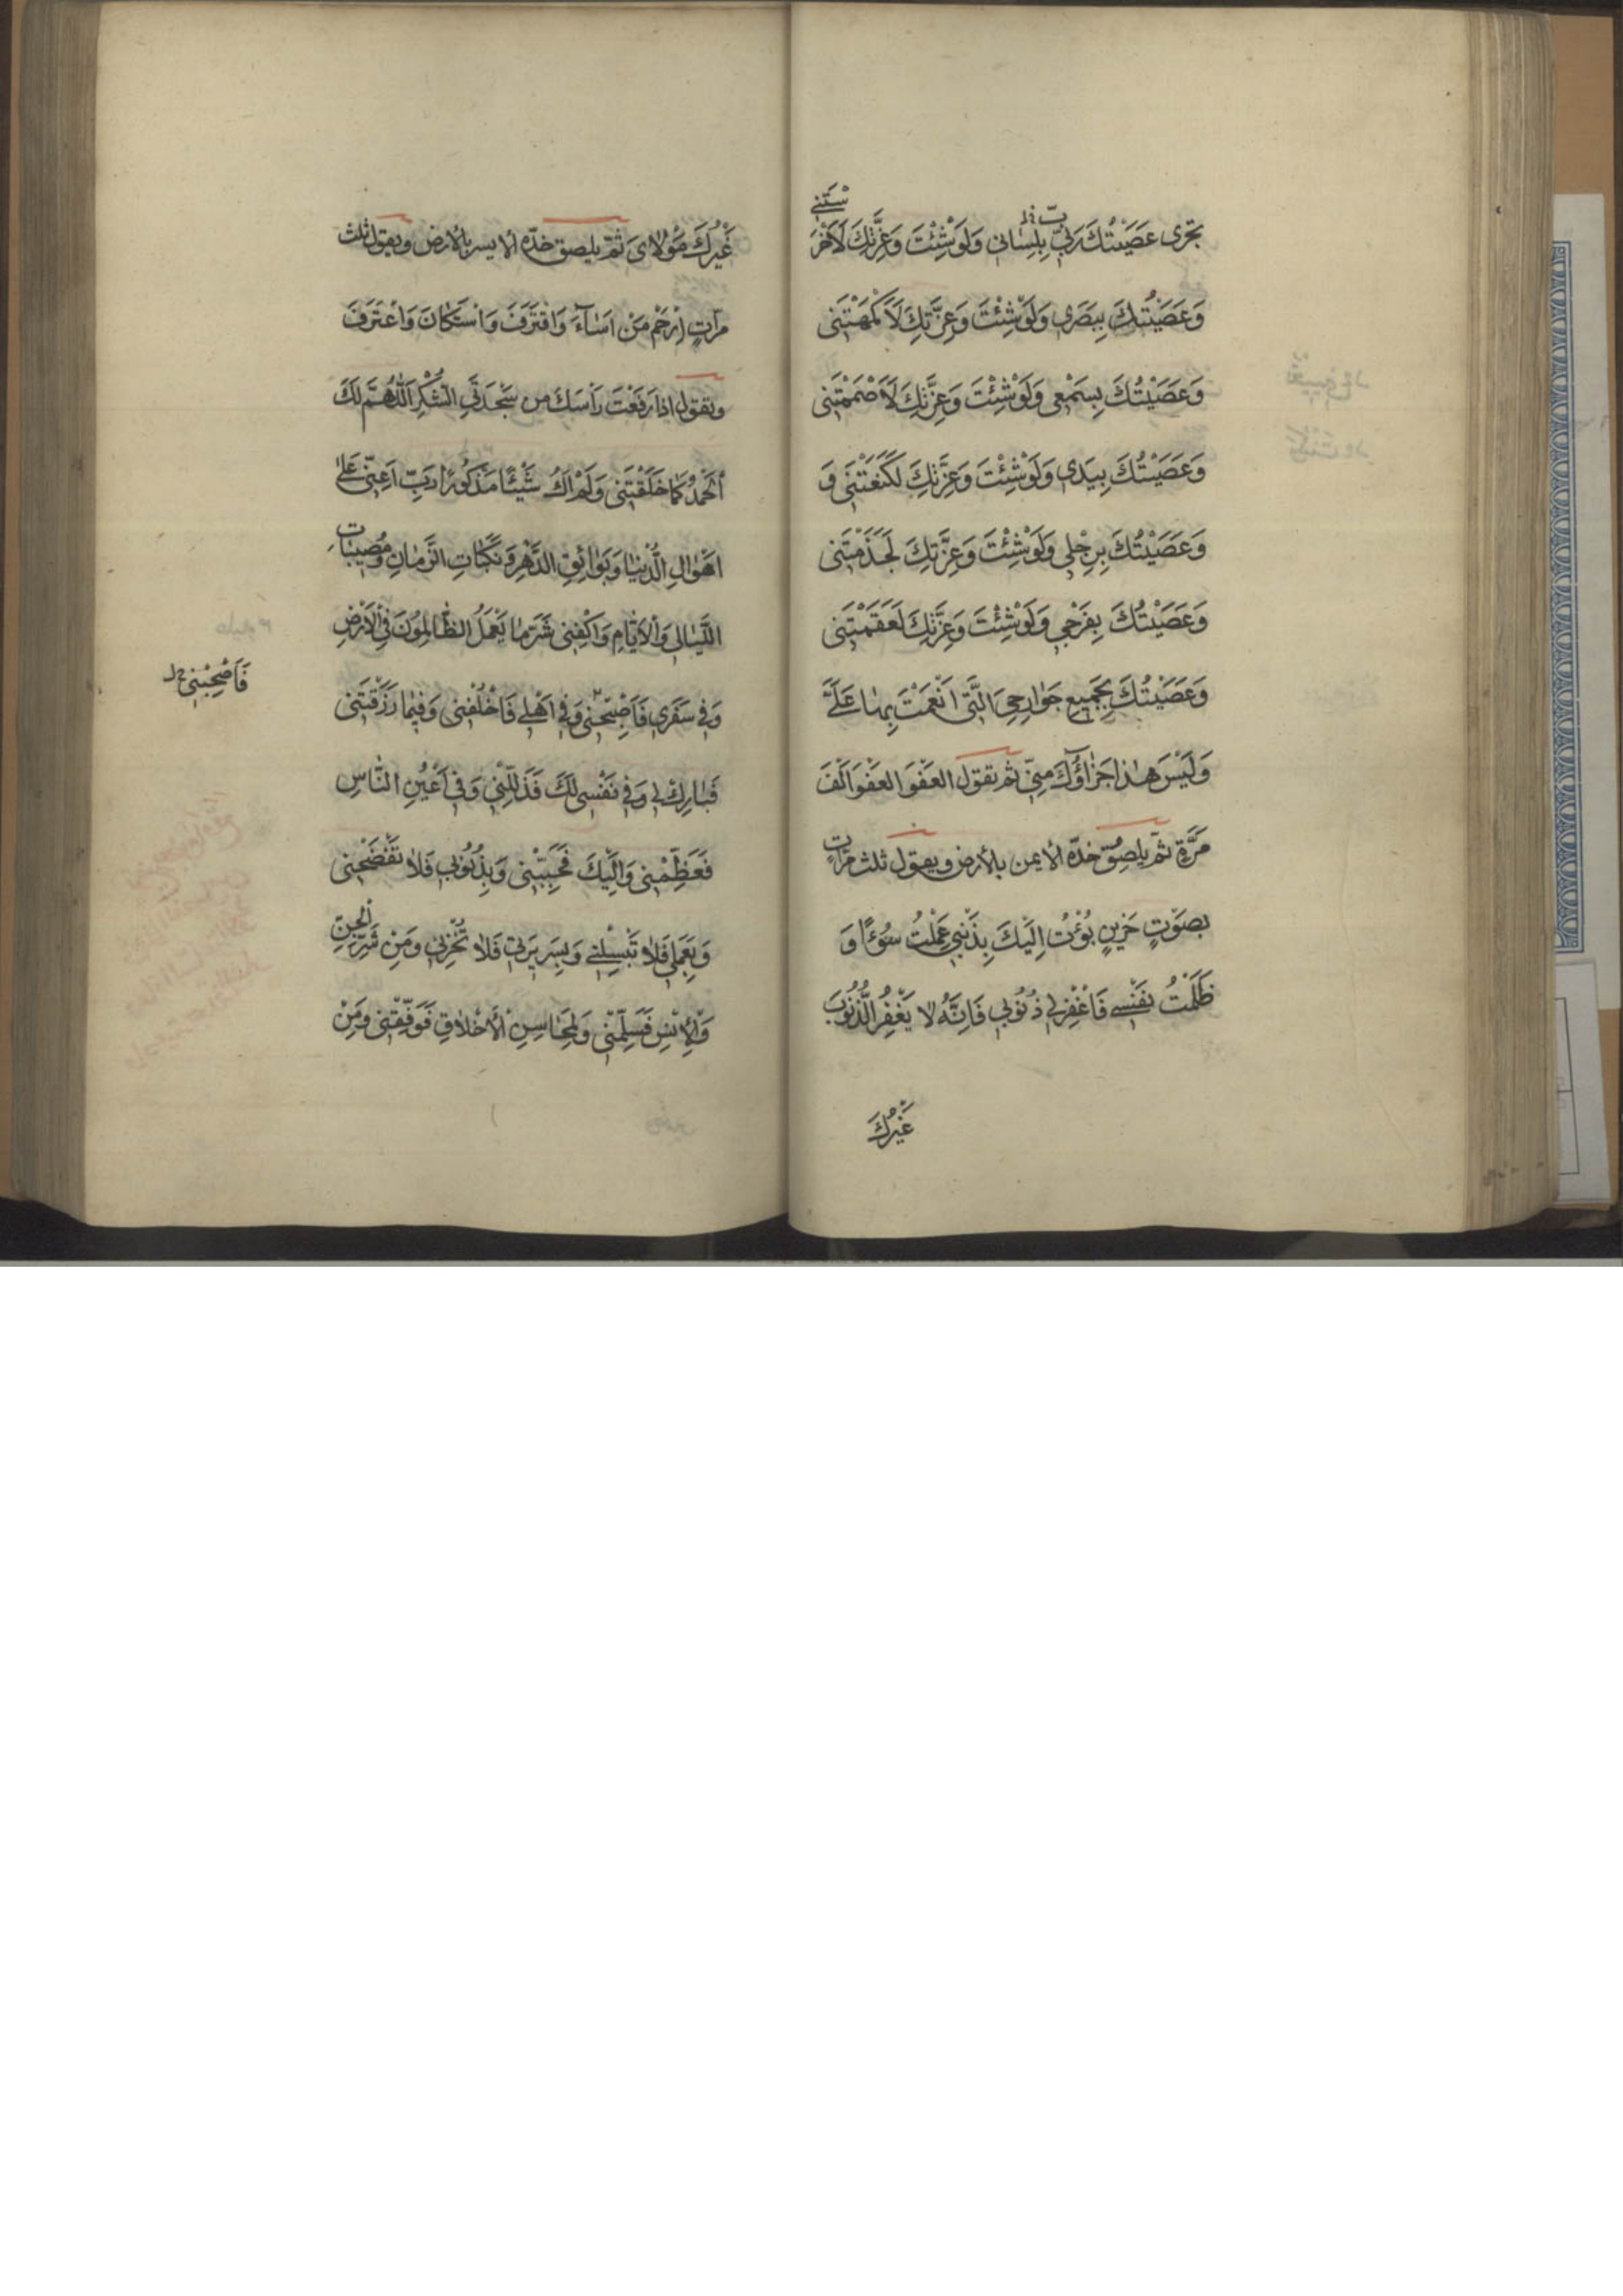 تجرى عَصَيْتُكَ رَبِّ بِلِسَانِى وَلَوْ شِئْتَ وَعِزَّتِكَ لَاَخْرَ
سْتَنِے
وَعَصَيْتُكَ بِبَصَرِى وَلَوْ شِئْتَ وَعِزَّتِكَ لَاَكْمَهْتَنِى
وَعَصَيْتُكَ بِسَمْعِى وَلَوْ شِئْتَ وَعِزَّتِكَ لَاَصْمَمْتَنِى
وَعَصَيْتُكَ بِيَدِى وَلَوْ شِئْتَ وَعِزَّتِكَ لَكَنَعْتَنِى وَ
وَعَصَيْتُكَ بِرِجْلِى وَلَوْ شِئْتَ وَعِزَّتِكَ لَجَذَمْتَنِى
وَعَصَيْتُكَ بِفَرْجِى وَلَوْ شِئْتَ وَعِزَّتِكَ لَعَقَمْتَنِى
وَعَصَيْتُكَ بِجَمِيعِ جَوَارِحِىَ الَّتِى اَنْعَمْتَ بِهَا عَلَىَّ
وَلَيْسَ هٰذا جَزاؤُكَ مِنِّى ثم تقول العَفْوَ العَفْوَ اَلْفَ
مَرَّةٍ ثم يلصِق خدّه الايمن بالأرض ويقول ثلث مرّات
بصَوْتٍ حَزِينٍ بُؤْتُ اِلَيْكَ بِذَنْبِى عَمِلْتُ سُوْءًا وَ
ظَلَمْتُ نَفْسِے فَاغْفِرْلِى ذُنُوْبِى فَاِنَّهُ لا يَغْفِرُ الذُّنُوْبَ
غَيْرُكَ
غَيْرُكَ مَوْلَاىَ ثمّ يلصق خدّه الايسر بالارض ويقول ثلث
مرّاتٍ اِرْحَمْ مَنْ اَسَآءَ وَاقْتَرَفَ وَاسْتَكَانَ وَاعْتَرَفَ
وتقول اذا رَفَعْتَ رَأسَكَ من سَجْدَتَىِ الشُّكْرِ اَللّٰهُمَّ لَكَ
اَلْحَمْدُ كَمَا خَلَقْتَنِى وَلَمْ اَكُ شَيْئًا مَذْكُورًا رَبِّ اَعِنِّى عَلىٰ
اَهْوَالِ الدُّنْيَا وَبَوَائِقِ الدَّهْرِ وَنَكَبَاتِ الزَّمَانِ وَمُصِيبَاتِ
اللَّيَالِى وَالْاَيَّامِ وَاكْفِنِى شَرَّ مَا يَعْمَلُ الظَّالِمُوْنَ فِى الْاَرْضِ
وَفِى سَفَرِى فَاَصْبِحْنِى وَفِى اَهْلِى فَاخْلُفْنِى وَفِيْمَا رَزَقْتَنِى
فَاَصْحِبْنِى خ ل
فَبَارِكْ لِى وَفِى نَفْسِى لَكَ فَذَلِّلْنِى وَفِى اَعْيُنِ النَّاسِ
فَعَظِّمْنِى وَاِلَيْكَ فَحَبِّبْنِى وَبِذُنُوْبِى فَلَا تَفْضَحْنِى
وَبِعَمَلِى فَلَا تَبْسِلْنِے وَبِسَرِيرَتِى فَلَا تُخْزِنِى وَمِنْ شَرِّ الْجِنِّ
وَالْاِنْسِ فَسَلِّمْنِى وَلِمَحَاسِنِ الْاَخْلَاقِ فَوَفِّقْنِى وَمِنْ